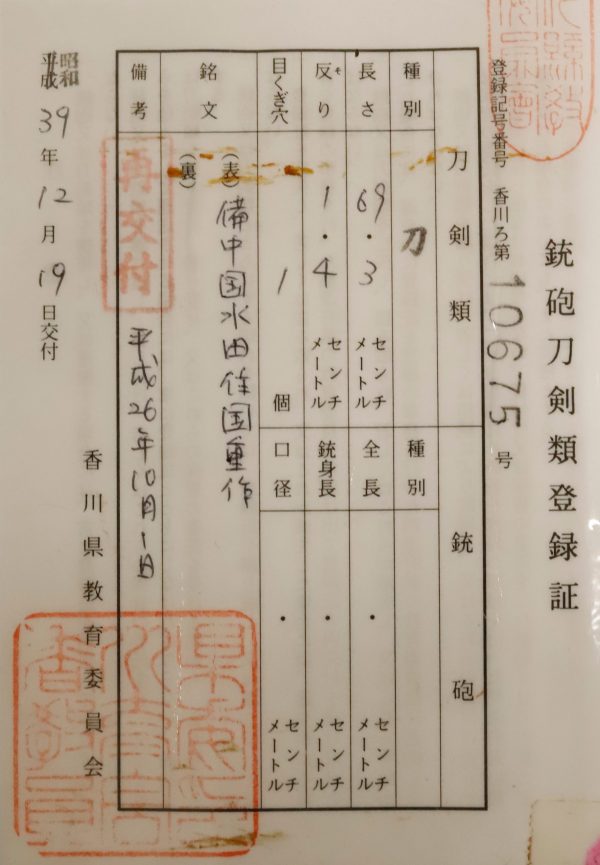 銃砲刀剣類登録証
登録記号番号 香川ろ第10675号
刀剣類
銃砲
種別
刀
種別
長さ
69・3
センチメートル
全長
・
センチメートル
反り
そ
1・4
センチメートル
銃身長
・
センチメートル
目くぎ穴
1
個
口径
・
センチメートル
銘文
(表)備中国水田住国重作
(裏)
備考
再交付
平成26年10月1日
昭和
平成
39年12月19日交付
香川県教育委員会